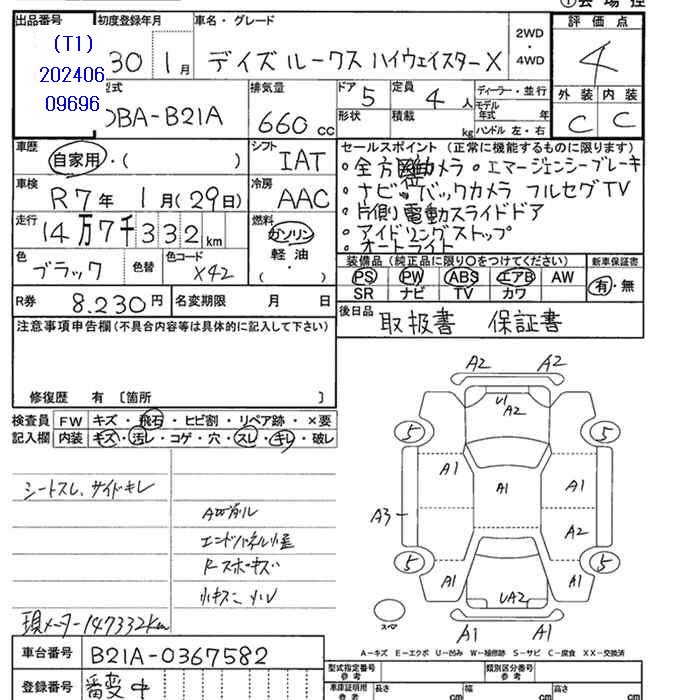 ①会場控
出品番号 初度登録年月 車名・グレード 2WD・4WD 評価点
(T1)
202406
09696
30 1月 デイズルークス ハイウェイスターX 4
型式 排気量 ドア 定員 ディーラー・並行 外装 内装
DBA-B21A 660cc 5 4人 モデル年式 年 C C
形状 積載 kg ハンドル 左・右
車歴 自家用・( ) シフト IAT
セールスポイント(正常に機能するものに限ります)
・全方位カメラ・エマージェンシーブレーキ
・ナビ・バックカメラ フルセグTV
・片側電動スライドドア
・アイドリングストップ
・オートライト
車検 R7年 1月(29日) 冷房 AAC
走行 14万7千332km 燃料 ガソリン 軽油 ( ・ )
色 ブラック 色替 色コード X42
装備品(純正品に限り○をつけてください) 新車保証書
PS PW ABS エアB AW 有・無
SR ナビ TV カワ
R券 8.230円 名変期限 月 日
後日品 取扱書 保証書
注意事項申告欄(不具合内容等は具体的に記入して下さい)
修復歴 有〔箇所 〕
検査員記入欄 FW キズ・飛石・ヒビ割・リペア跡・×要
内装 キズ・汚レ・コゲ・穴・スレ・キレ・破レ
シートスレ、サイドキレ
エンドパネル小凹
Rスポキズ
小キズ小凹
現メーター147332km
A2 A2
U1 A2
5 5
A1 A1 A1
A3 A2
5 5
A1 UA2 A1
A1 A1
スペア
A=キズ E=エクボ U=凹み W=補修跡 S=サビ C=腐食 XX=交換済
車台番号 B21A-0367582
登録番号 番変中
型式指定番号 参考 類別区分番号 参考
車庫証明用 参考 長さ cm 幅 cm 高さ cm